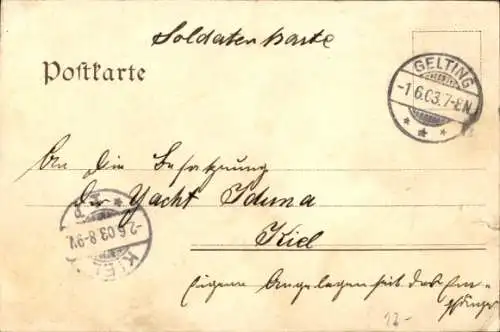 Soldatenkarte
Postkarte
GELTING
-1.6.03.7-8N.
An die Besatzung
der Yacht Iduna
Kiel
KIEL
-2.6.03.8-9V.
Eigene Angelegenheit des Em-
pfängers
12-